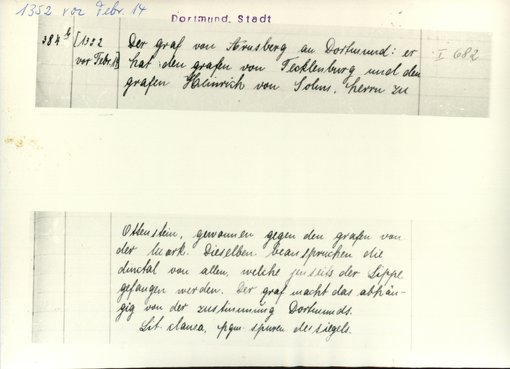 1352 vor Febr. 14
Dortmund, Stadt
384 b [1352 vor Febr. 14] Der graf von Arnsberg an Dortmund: er I 682
hat den grafen von Tecklenburg und den
grafen Heinrich von Solms, herrn zu
Ottenstein, gewonnen gegen den grafen von
der Mark. Dieselben beanspruchen die
dinctal von allen, welche jenseits der Lippe
gefangen werden. Der graf macht das abhän-
gig von der zustimmung Dortmunds.
Lit. clausa, pgm. spuren des siegels.